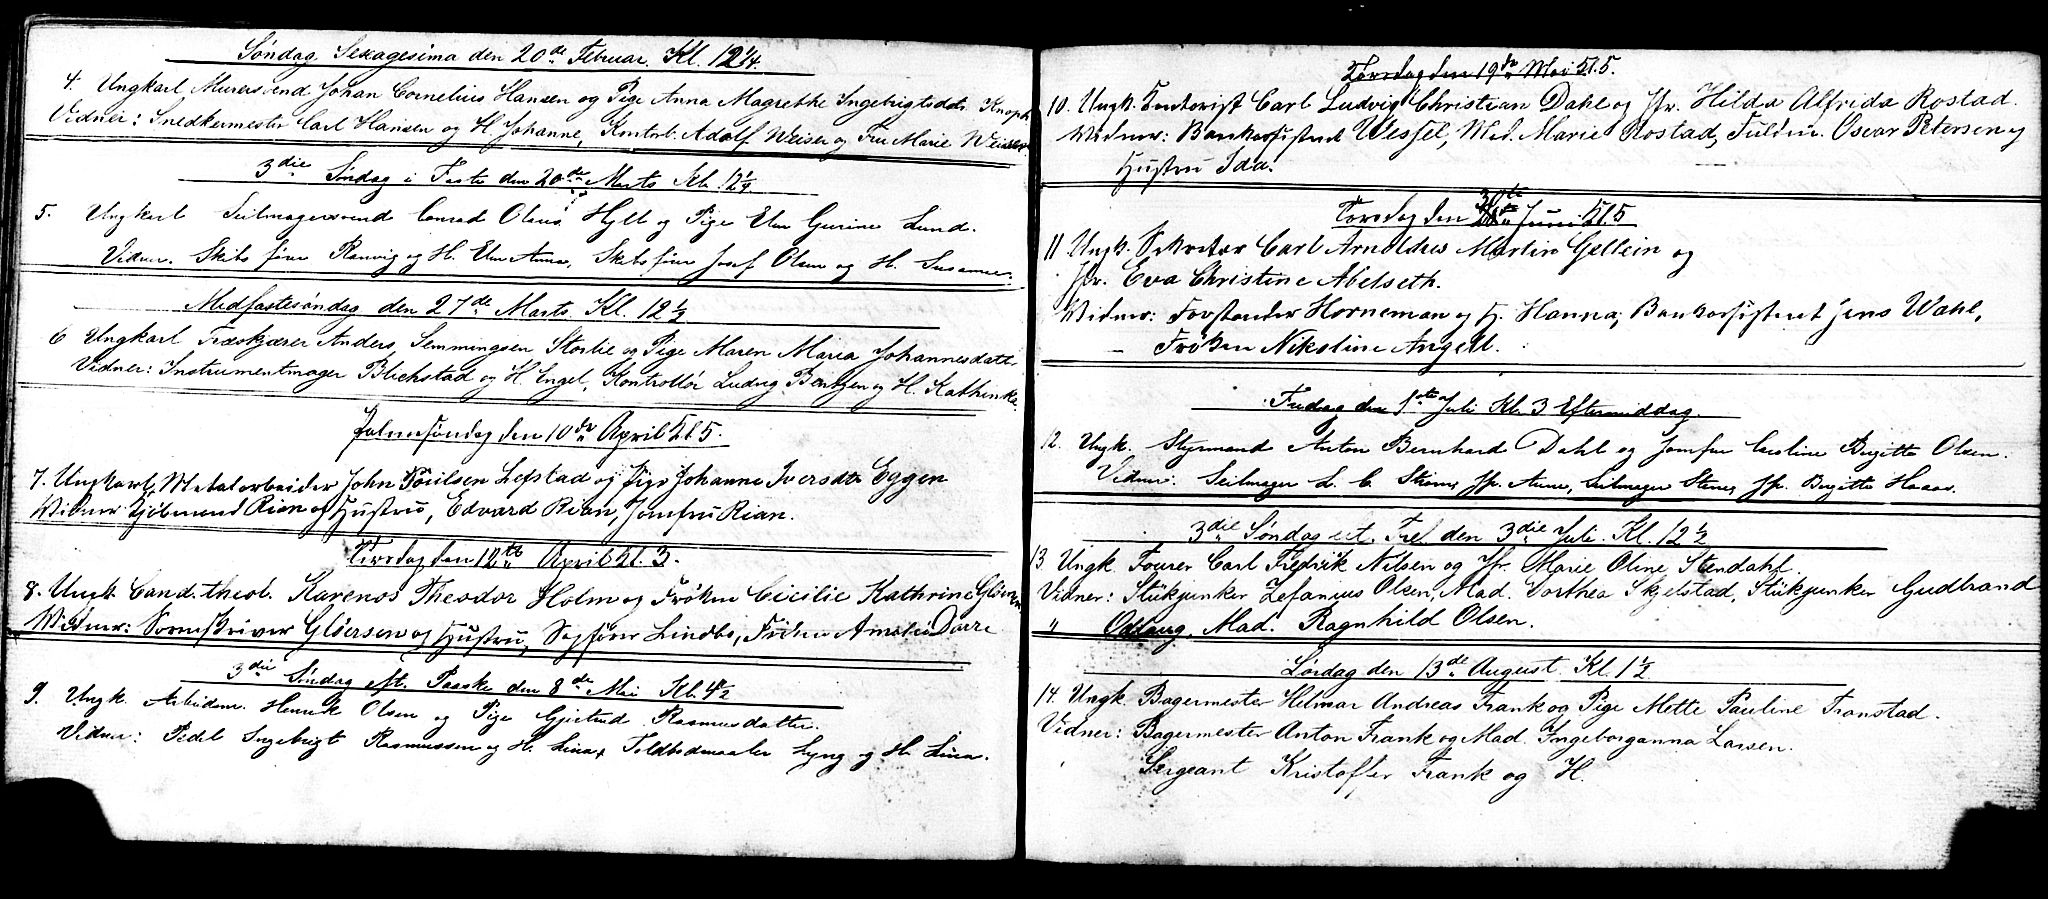 Søndag Sexagesima den 20de Februar Kl. 12 1/4.
4. Ungkarl Murersvend Johan Cornelius Hansen og Pige Anna Magrethe Ingebrigtsdtr Knoph
Vidner: Snedkermester Carl Hansen og H. Johanne, Kontrl. Adolf Weisen og Fru Marie Weisen
3die Søndag i Faste den 20de Marts Kl. 12 1/4
5. Ungkarl Seilmagersvend Conrad Olaus Hyll og Pige Elen Gurine Lund.
Vidner. Skibsfører Ranvig og H. Elen Anna, Skibsfører Josef Olsen og H. Susanne.
Midfastesøndag den 27de Marts Kl. 12 1/2
6 Ungkarl Træskjærer Anders Semmingsen Storlie og Pige Maren Maria Johannesdatt.
Vidner: Instrumentmager Blichstad og H. Engel, Kontrollør Ludvig Berntzen og H. Kathinka.
Palmesøndag den 10de April Kl 5.
7. Ungkarl, Metalarbeider John Poulsen Lefstad og Pige Johanne Iversdtr Eggen
Widner Kjøbmand Rian og Hustru, Edvard Rian, Jomfru Rian.
Tirsdag den 12te April Kl. 3.
8. Ungk. Cand. theol. Karenos Theodor Holm og Frøken Cicilie Kathrine Gløersen
Widner: Sorenskriver Gløersen og Hustru, Sagfører Lindbo, Frøken Amalie Darre
3die Søndag eft. Paaske den 8de Mai Kl. 4 1/2
9. Ungk. Arbeidsm. Henrik Olsen og Pige Gjertrud Rasmusdatter.
Vidner: Pedel Ingebrigt Rasmussen og H. Lina, Toldbodmaaler Lyng og H. Lina.
Torsdag den 19de Mai Kl 5.
10. Ungk. Kontorist Carl Ludvig Christian Dahl og Jfr. Hilda Alfrida Rostad.
Widner: Bankassistent Wessel, Md. Marie Rostad, Fuldm. Oscar Petersen og
Hustru Ida.
Torsdag den 30te Juni Kl 5
11. Ungk. Sekretær Carl Arnoldus Martin Gellein og
Jfr. Eva Christine Abelseth.
Widner: Forstander Horneman og H. Hanna, Bankassistent Jens Wahl,
Frøken Nikoline Angell.
Fredag den 1ste Juli Kl. 3 Eftermiddag.
12. Ungk. Styrmand Anton Bernhard Dahl og Jomfru Caroline Birgitte Olsen.
Vidner. Seilmager L. C. Strøm, Jfr. Anne, Seilmager Stene, Jfr. Birgitte Haave.
3die Søndag eft. Tref. den 3die Juli. Kl. 12 1/2
13 Ungk. Fourer Carl Fredrik Nilsen og Jfr. Marie Oline Stendahl.
Vidner: Stükjunker Zefanius Olsen, Mad. Dorthea Skjelstad, Stükjunker Gudbrand
" Odlaug. Mad. Ragnhild Olsen.
Lørdag den 13de August. Kl. 1 1/2
14. Ungk. Bagermester Helmar Andreas Frank og Pige Mette Pauline Tronstad.
Vidner: Bagermester Anton Frank og Mad. Ingeborganna Larsen.
Sergeant Kristoffer Frank og H.